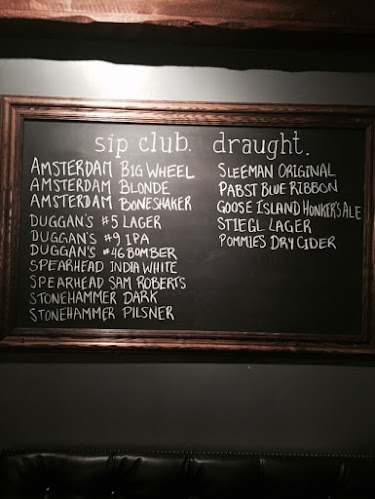 sip club. draught.
AMSTERDAM BIG WHEEL
AMSTERDAM BLONDE
AMSTERDAM BONESHAKER
DUGGAN'S #5 LAGER
DUGGAN'S #9 IPA
DUGGAN'S #46 BOMBER
SPEARHEAD INDIA WHITE
SPEARHEAD SAM ROBERTS
STONEHAMMER DARK
STONEHAMMER PILSNER
SLEEMAN ORIGINAL
PABST BLUE RIBBON
GOOSE ISLAND HONKER'S ALE
STIEGL LAGER
POMMIES DRY CIDER